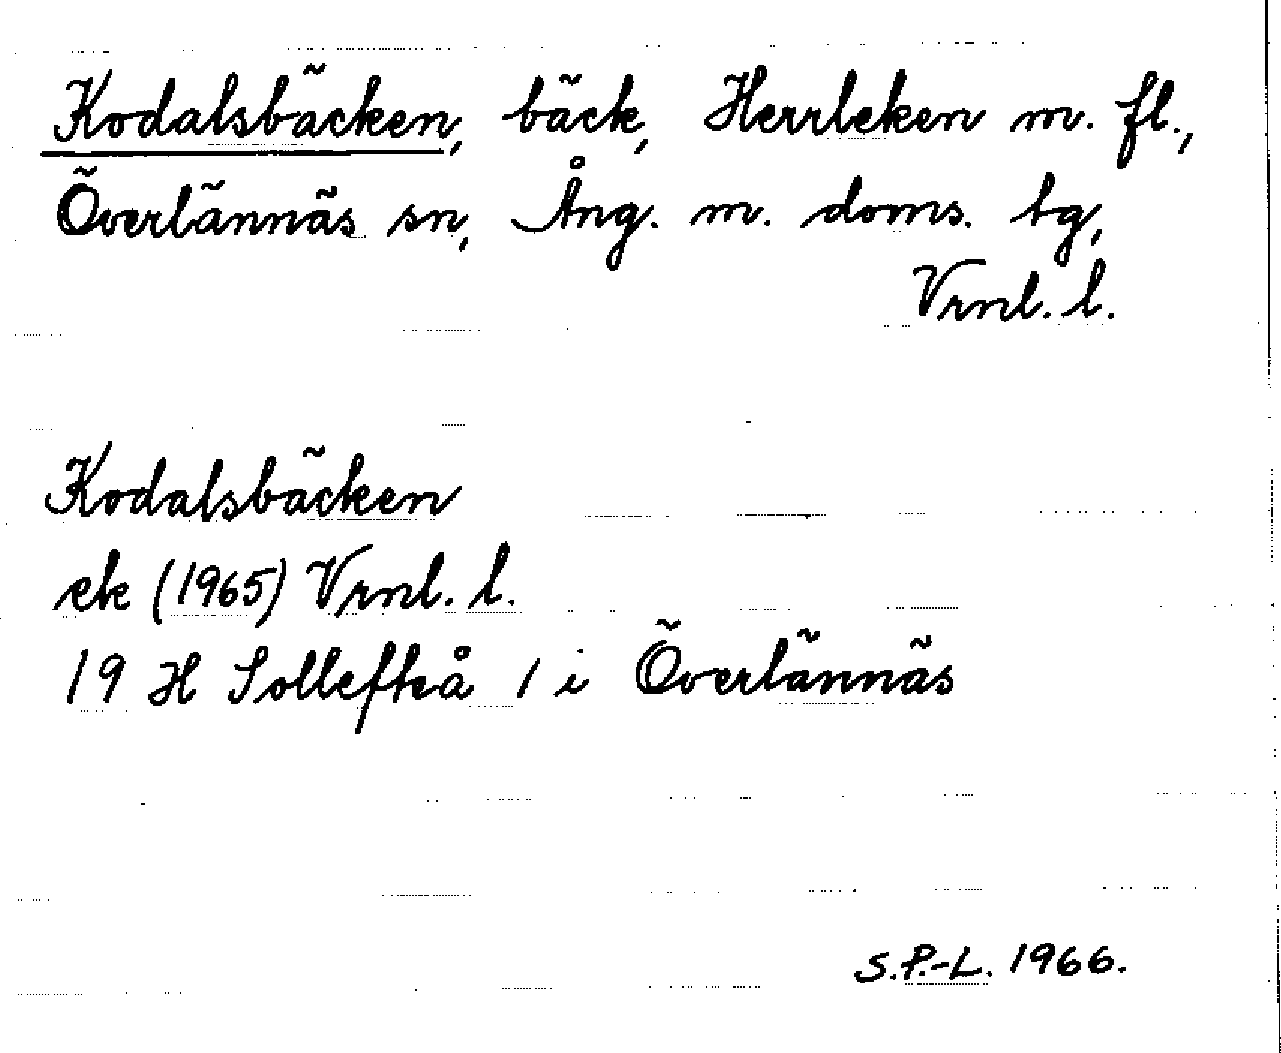 Kodalsbäcken, bäck, Herrleken m. fl.,
Överlännäs sn, Ång. m. doms. tg,
Vrnl. l.
Kodalsbäcken
ek (1965) Vrnl. l.
19 H Sollefteå 1 i Överlännäs
S.P.-L. 1966.